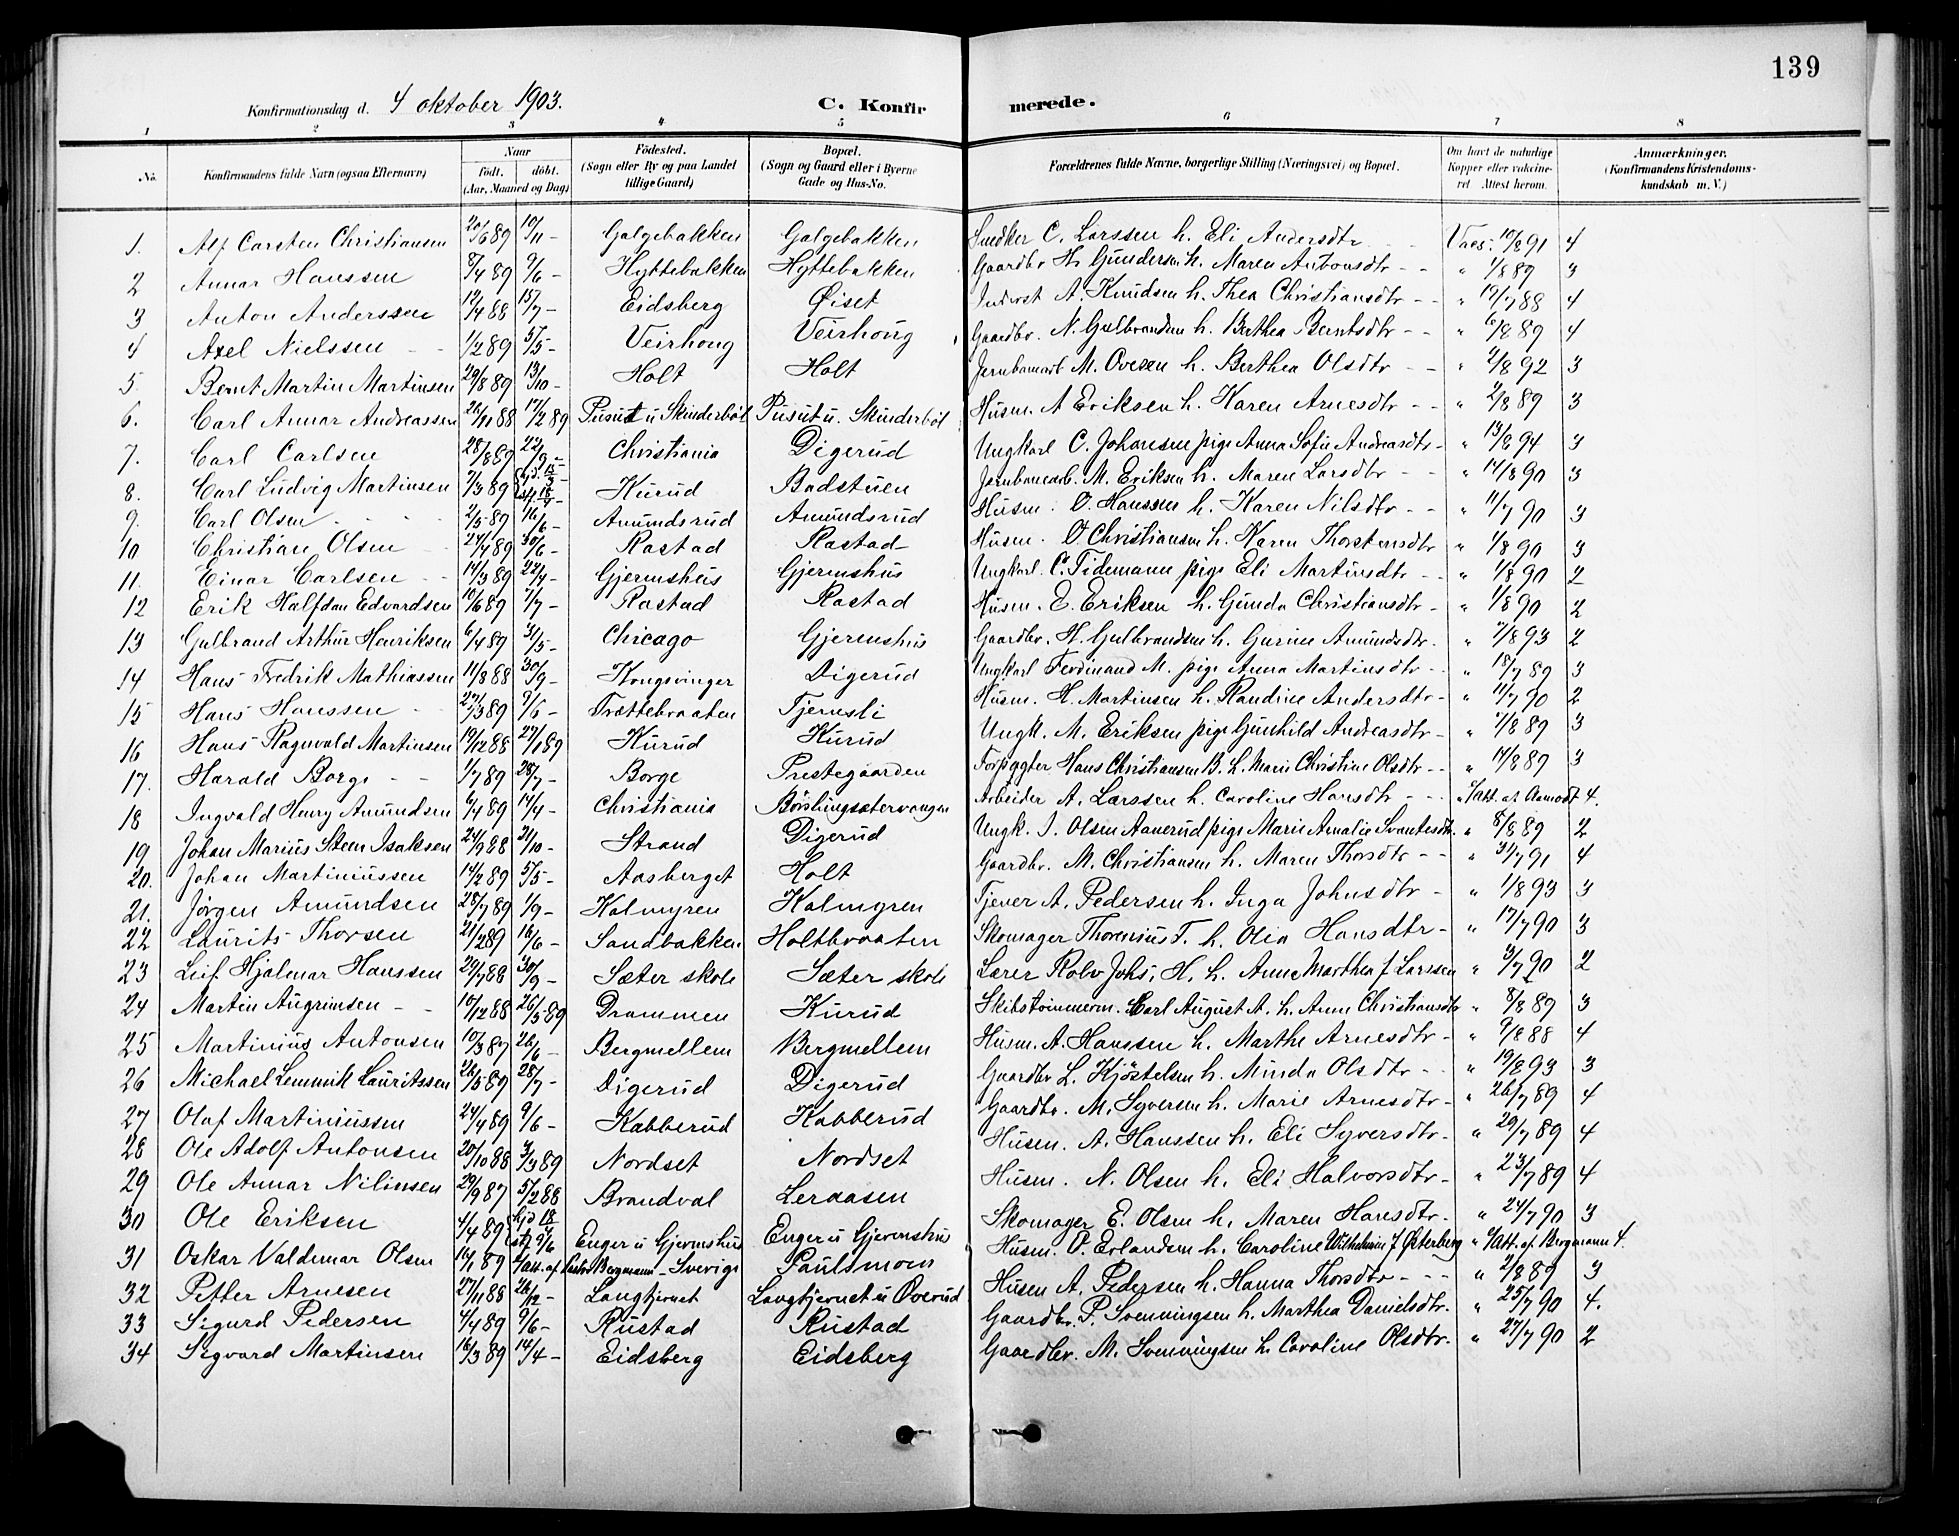 139
Konfirmationsdag d. 4 oktober 1903. C. Konfirmerede.
1 2 3 4 5 6 7 8
No. Konfirmandens fulde Navn (ogsaa Efternavn) Naar født. døbt. (Aar, Maaned og Dag) Fødested. (Sogn eller By og paa Landet tillige Gaard) Bopæl. (Sogn og Gaard eller i Byerne Gade og Hus-No. Forældrenes fulde Navne, borgerlige Stilling (Næringsvei) og Bopæl. Om havt de naturlige Kopper eller vaccineret Attest herom. Anmærkninger. (Konfirmandens Kristendomskundskab m. V.)
1. Alf Carsten Christiansen 20/6 89 10/11 - Galgebakken Galgebakken Snedker C. Larssen h. Eli Andersdtr Vacc. 10/8 91 4
2 Annar Hanssen 8/4 89 9/6 - Hyttebakken Hyttebakken Gaardbr H. Gundersen h. Maren Antonsdtr - - " 1/8 89 3
3 Anton Anderssen 12/4 88 15/7 - Eidsberg Øiset Inderst A. Knudsen h. Thea Christiansdtr - - " 19/7 88 4
4 Axel Nielssen 1/2 89 5/5 - Veirhoug Veirhoug Gaardbr. N. Gulbrandsen h. Berthea Berntsdtr - - " 6/8 89 4
5. Bernt Martin Martinsen 29/8 89 13/10 - Holt Holt Jernbanearb M. Ovesen h. Berthea Olsdtr - - " 4/8 92 3
6. Carl Annar Andreassen 26/11 88 17/2 89 Pusut u Skinderböl Pusut u. Skinderböl Husm. A Eriksen h. Karen Arnesdtr - - " 2/8 89 3
7. Carl Carlsen 28/8 89 22/9 - Christiania Digerud Ungkarl C. Johansen pige Anna Sofie Andreasdtr - " 13/8 94 3
8. Carl Ludvig Martinsen 7/3 89 Kurud Badstuen Jernbanearb. M. Eriksen h. Maren Larsdtr - - " 14/8 90 3
9. Carl Olsen 2/5 89 16/6 - Amundsrud Amundsrud Husm. O. Hanssen h. Karen Nilsdtr - - " 11/7 90 3
10 Christian Olsen 24/4 89 30/6 - Rastad Rastad Husm. O Christiansen h. Karen Thorstensdtr " 1/8 90 3
11. Einar Carlsen 14/3 89 22/4 - Gjermshus Gjermshus Ungkarl. C. Tidemann pige Eli Martinsdtr - " 1/8 90 2
12 Erik Halfdan Edvardsen 10/6 89 7/7 - Rastad Rastad Husm. E. Eriksen h. Gunda Christiansdtr - " 1/8 90 2
13 Gulbrand Arthur Henriksen 6/4 89 31/5 - Chicago Gjermshus Gaardbr. H. Gulbrandsen h. Gurine Amundsdtr - " 7/8 93 2
14 Hans Fredrik Mathiassen 11/8 88 30/9 - Kongsvinger Digerud Ungkarl Ferdinand M. pige Anna Martinsdtr - " 18/7 89 3
15 Hans Hanssen 27/3 89 9/6 - Trættebraaten Tjernsli Husm. H. Martinsen h. Randine Andersdtr - " 11/7 90 2
16 Hans Ragnvald Martinsen 19/12 88 27/1 89 Kurud Kurud Ungk. M. Eriksen pige Gunhild Andreasdtr - " 7/8 89 3
17. Harald Borge - - 1/7 89 28/7 - Borge Prestegaarden Forpagter Hans Christiansen B. h. Marie Christine Olsdtr - - " 14/8 89 3
18 Ingvald Henry Amundsen 6/4 89 14/4 - Christiania Börslingsætervangen Arbeider A. Larssen h. Caroline Hansdtr - - - " att. af Aamodt 4.
19 Johan Marius Steen Isaksen 24/9 88 31/10 - Strand Digerud Ungk. I. Olsen Aanerud pige Marie Amalie Svantesdtr. " 8/8 89 2
20. Johan Martiniussen 14/2 89 5/5 - Aasberget Holt Gaardbr. M. Christiansen h. Maren Thorsdtr - - " 31/7 91 4
21. Jørgen Amundsen 28/7 89 1/9 - Kalmyren Kalmyren Tjener A. Pedersen h. Inga Johnsdtr - " 1/8 93 3
22 Laurits Thorsen 21/2 89 16/6 - Sandbakken Holtbraaten Skomager Thorenius T. h. Olia Hansdtr - " 17/7 90 3
23 Leif Hjalmar Hanssen 29/7 88 30/9 - Sæter skole Sæter skole Lærer Rolv Johs. H. h. Anne Marthea f Larssen " 3/7 90 2
24 Martin Augrimsen - - 10/12 88 26/5 89 Drammen Kurud Skibstømmerm. Carl August A. h. Anne Christiansdtr " 8/8 89 3
25 Martinius Antonsen 10/3 87 26/6 - Bergmellem Bergmellem Husm. A. Hanssen h. Marthe Arnesdtr - " 9/8 88 4
26 Michael Lemmik Lauritssen 26/5 89 28/7 - Digerud Digerud Gaardbr L. Kjöstelsen h. Minda Olsdtr - - " 19/8 93 3
27 Olaf Martiniussen 24/4 89 9/6 - Kabberud Kabberud Gaardbr. M. Syversen h. Marie Arnesdtr - " 26/7 89 4
28 Ole Adolf Antonsen 20/10 88 3/3 89 Nordset Nordset Husm. A. Hanssen h. Eli Syversdtr - " 29/7 89 4
29 Ole Annar Nilinsen 29/9 87 5/2 88 Brandval Leraasen Husm. N. Olsen h. Eli Halvorsdtr - " 23/7 89 4
30 Ole Eriksen 4/4 89 Enger u Gjermshus Enger u Gjermshus Skomager E. Olsen h. Maren Hansdtr - " 24/7 90 3
31 Oskar Valdemar Olsen 16/1 89 att. af Bergmann - Sverige Paulsmoen Husm. O. Erlandsen h. Caroline Wilhelmine f Østerberg " att. af Bergmann 4.
32 Petter Arnesen 27/11 88 26/12 - Langtjernet Langtjernet u Overud Husm A. Pedersen h. Hanna Thorsdtr - - - " 2/8 89 3
33 Sigurd Pedersen 4/4 89 9/6 - Rustad Rustad Gaardbr. P. Svenningsen h. Marthea Danielsdtr. " 25/7 90 4.
34 Sigvard Martinsen 16/3 89 14/4 - Eidsberg Eidsberg Gaardbr. M. Svenningsen h. Caroline Olsdtr. " 27/7 90 2